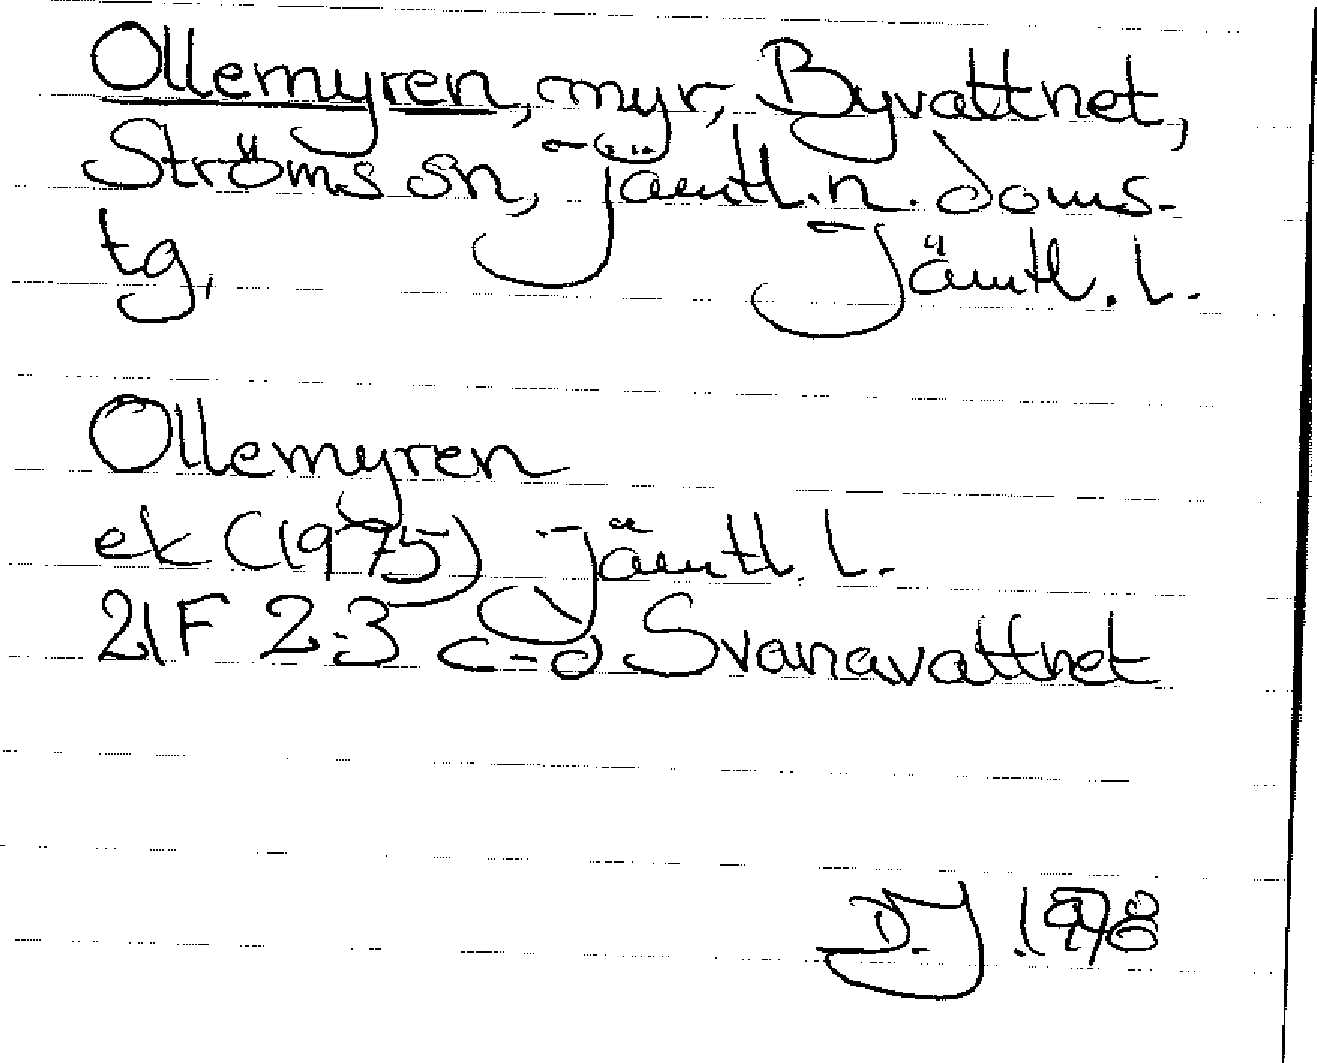 Ollemyren, myr, Byvattnet,
Ströms sn, Jämtl. n. doms-
tg, Jämtl. l.
Ollemyren
ek (1975) Jämtl. l.
21F 2-3 c-d Svanavattnet
D.J. 1978